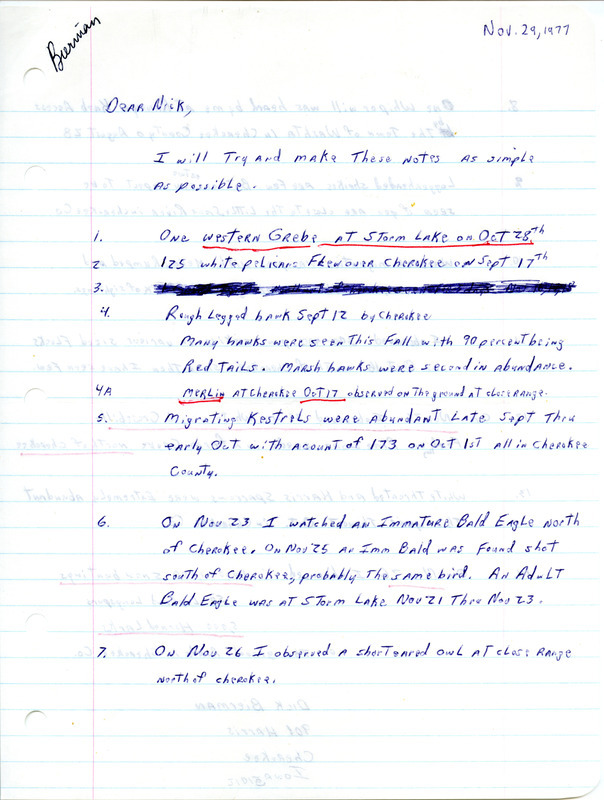 Bierman
Nov. 29, 1977
Dear Nick,
I will Try and make These notes as simple
as possible.
1. One western Grebe at Storm Lake on Oct 28th
2 125 white pelicans Flew over Cherokee on Sept 17th
3.
4. Rough Legged hawk Sept 12 by Cherokee
Many hawks were seen This Fall with 90 percent being
Red Tails. Marsh hawks were second in abundance.
4A Merlin at Cherokee Oct 17 observed on The ground at close range.
5. Migrating Kestrels were abundant Late Sept Thru
early Oct with acount of 173 on Oct 1st all in Cherokee
County.
6. On Nov 23 I watched an Immature Bald Eagle north
of Cherokee. On Nov 25 an Imm Bald was found shot
south of Cherokee, probably The same bird. An Adult
Bald Eagle was at Storm Lake Nov 21 Thru Nov 23.
7. On Nov 26 I observed a short eared owl at close range
north of cherokee.
Dick Bierman
Cherokee